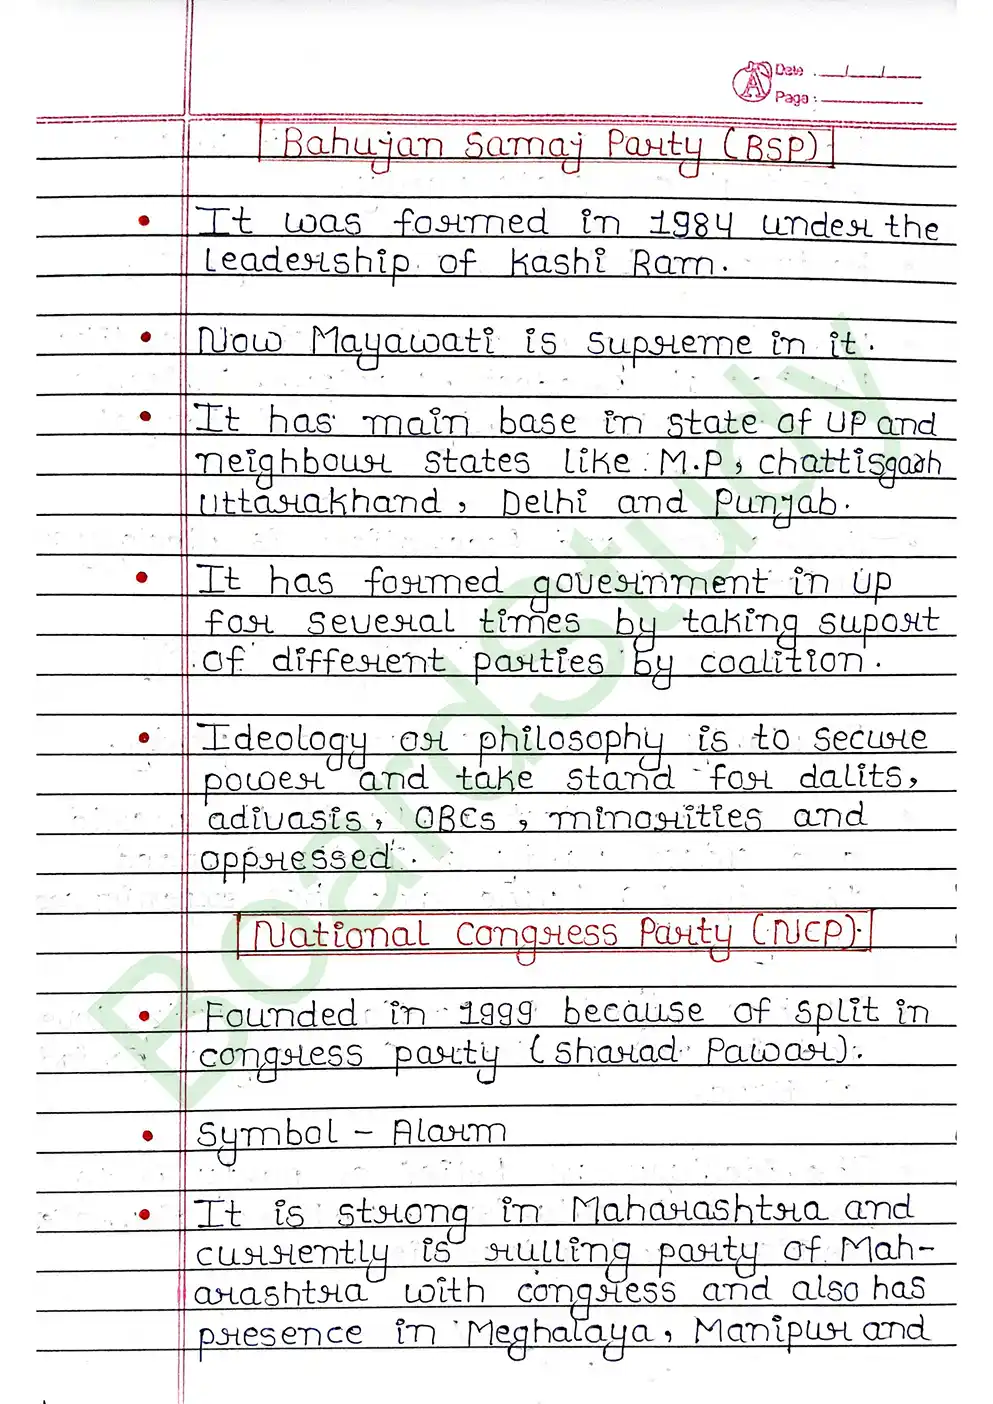 Date : __/__/__
Page :
Bahujan Samaj Party (BSP)
It was formed in 1984 under the
Leadership of Kashi Ram.
Now Mayawati is supreme in it.
It has main base in state of UP and
neighbour states like M.P, chattisgarh
Uttarakhand, Delhi and Punjab.
It has formed government in UP
for several times by taking suport
of different parties by coalition.
Ideology or philosophy is to secure
power and take stand for dalits,
adivasis, OBCs, minorities and
oppressed.
National Congress Party (NCP)
Founded in 1999 because of split in
congress party (Sharad Pawar).
Symbol - Alarm
It is strong in Maharashtra and
currently is rulling party of Mah-
arashtra with congress and also has
presence in Meghalaya, Manipur and
BoardStudy